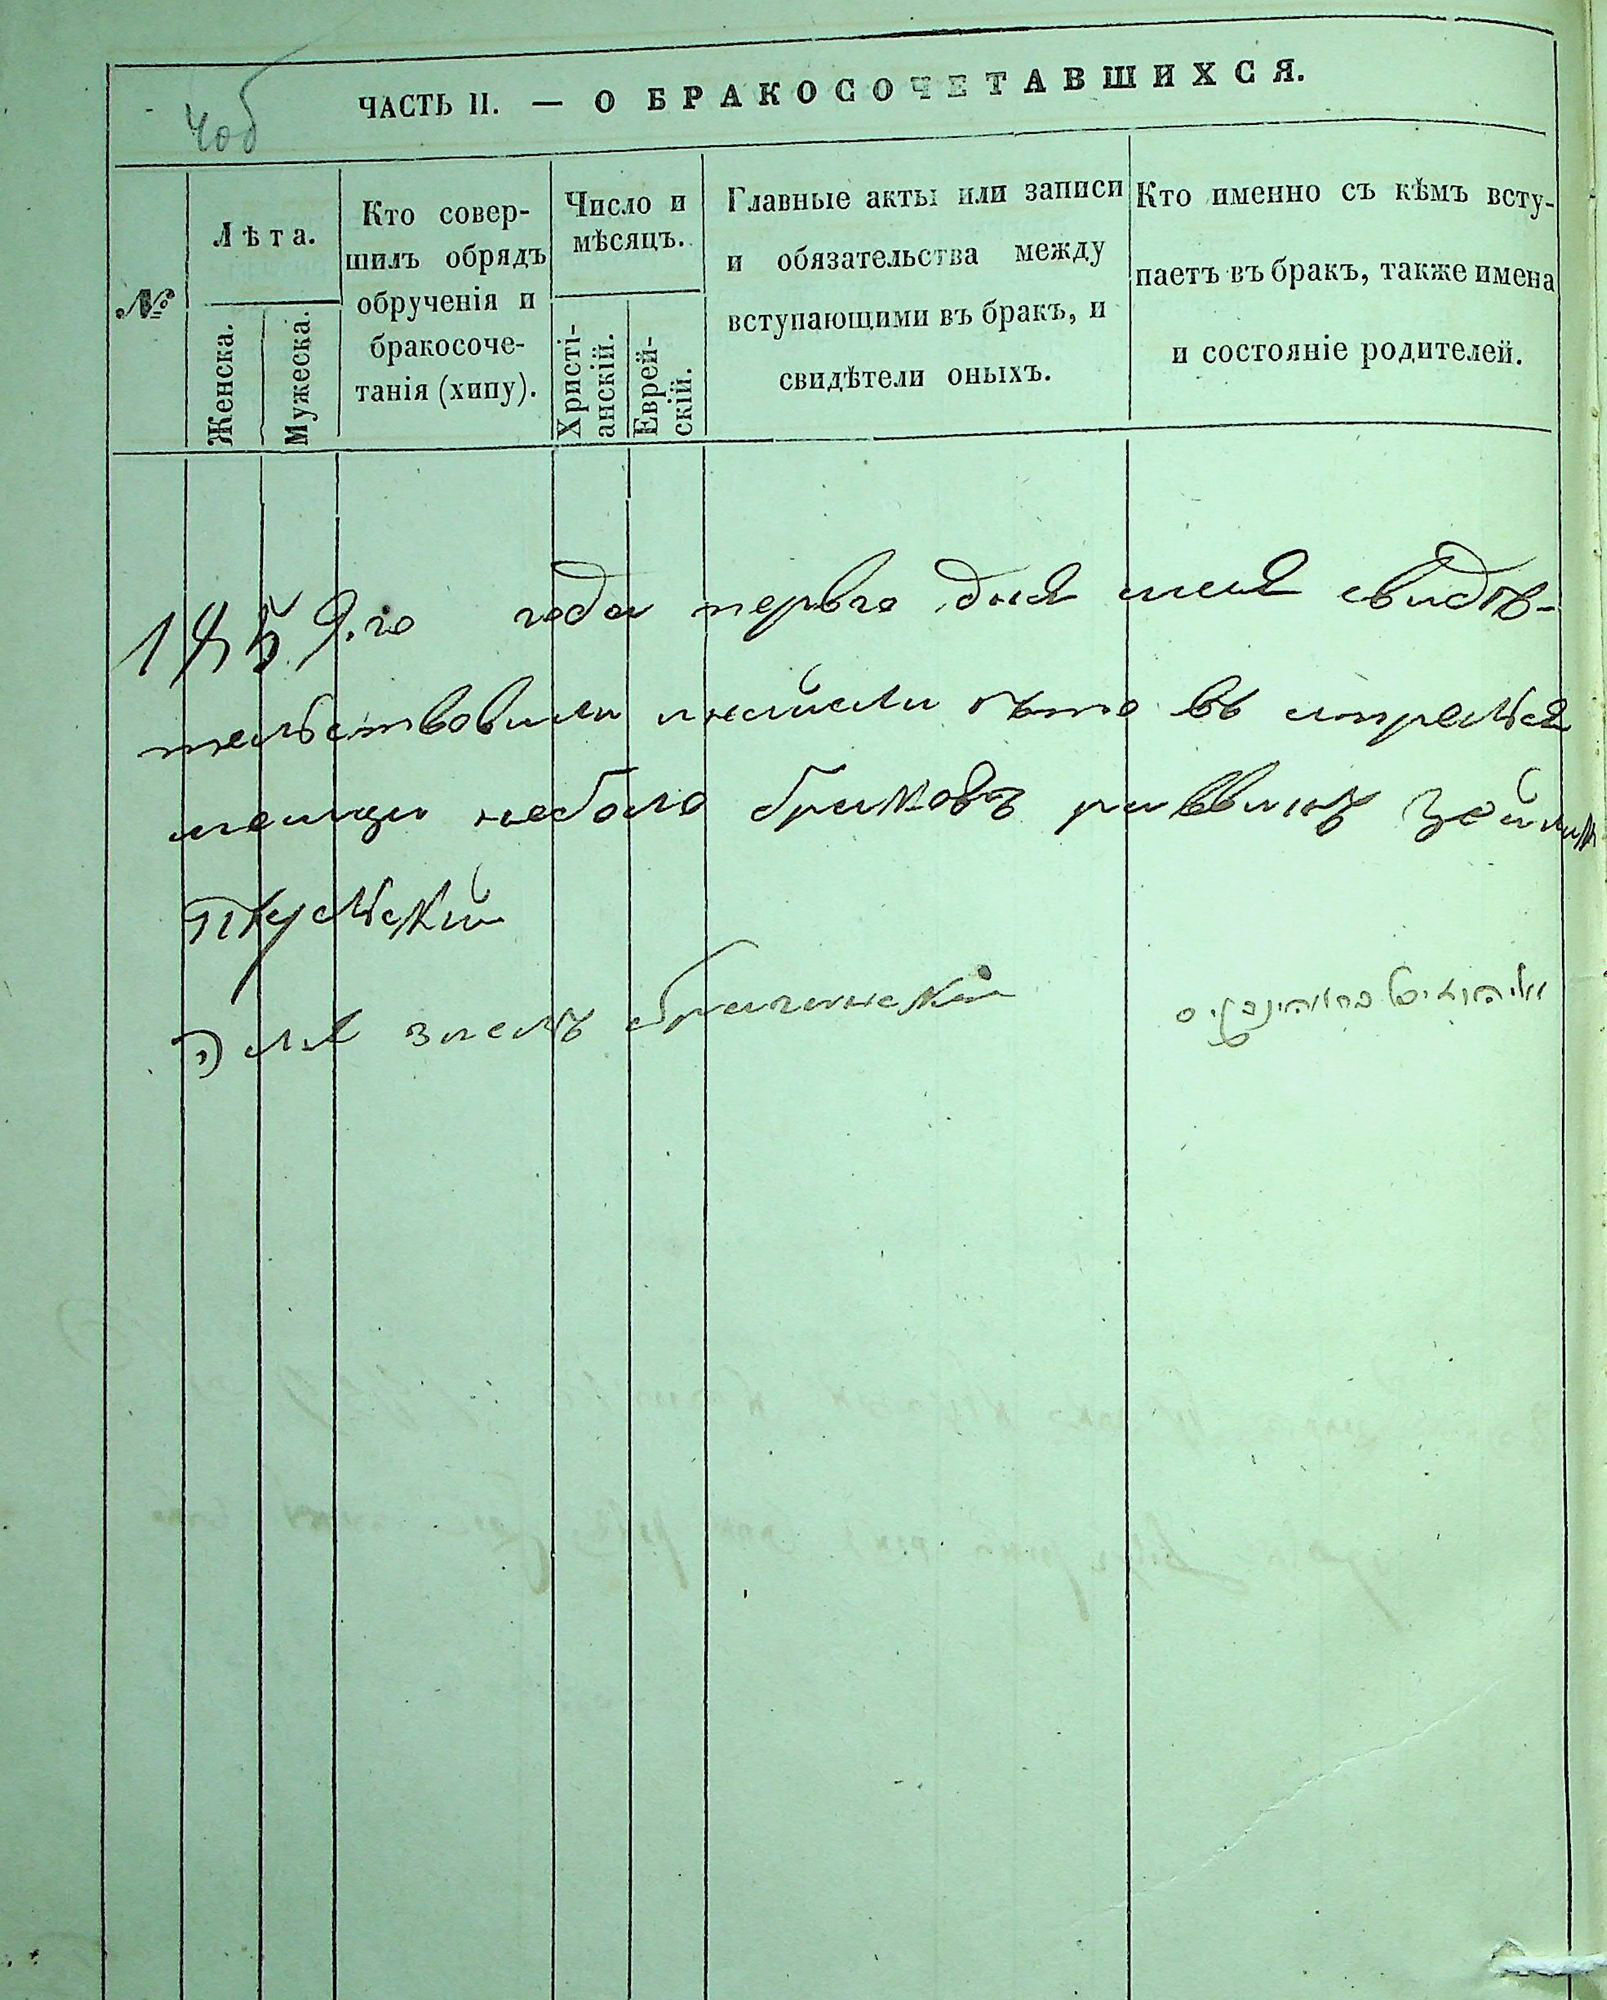 ЧАСТЬ II. — О БРАКОСОЧЕТАВШИХСЯ.
№
Лѣта.
Женска.
Мужеска.
Кто совер-
шилъ обрядъ
обрученія и
бракосоче-
танія (хипу).
Число и
мѣсяцъ.
Христі-
анскій.
Еврей-
скій.
Главные акты или записи
и обязательства между
вступающими въ бракъ, и
свидѣтели оныхъ.
Кто именно съ кѣмъ всту-
паетъ въ бракъ, также имена
и состояніе родителей.
1859.го года перваго дня мая свидѣ-
тельствовали въ апреля
месяци небыло браковъ раввинъ